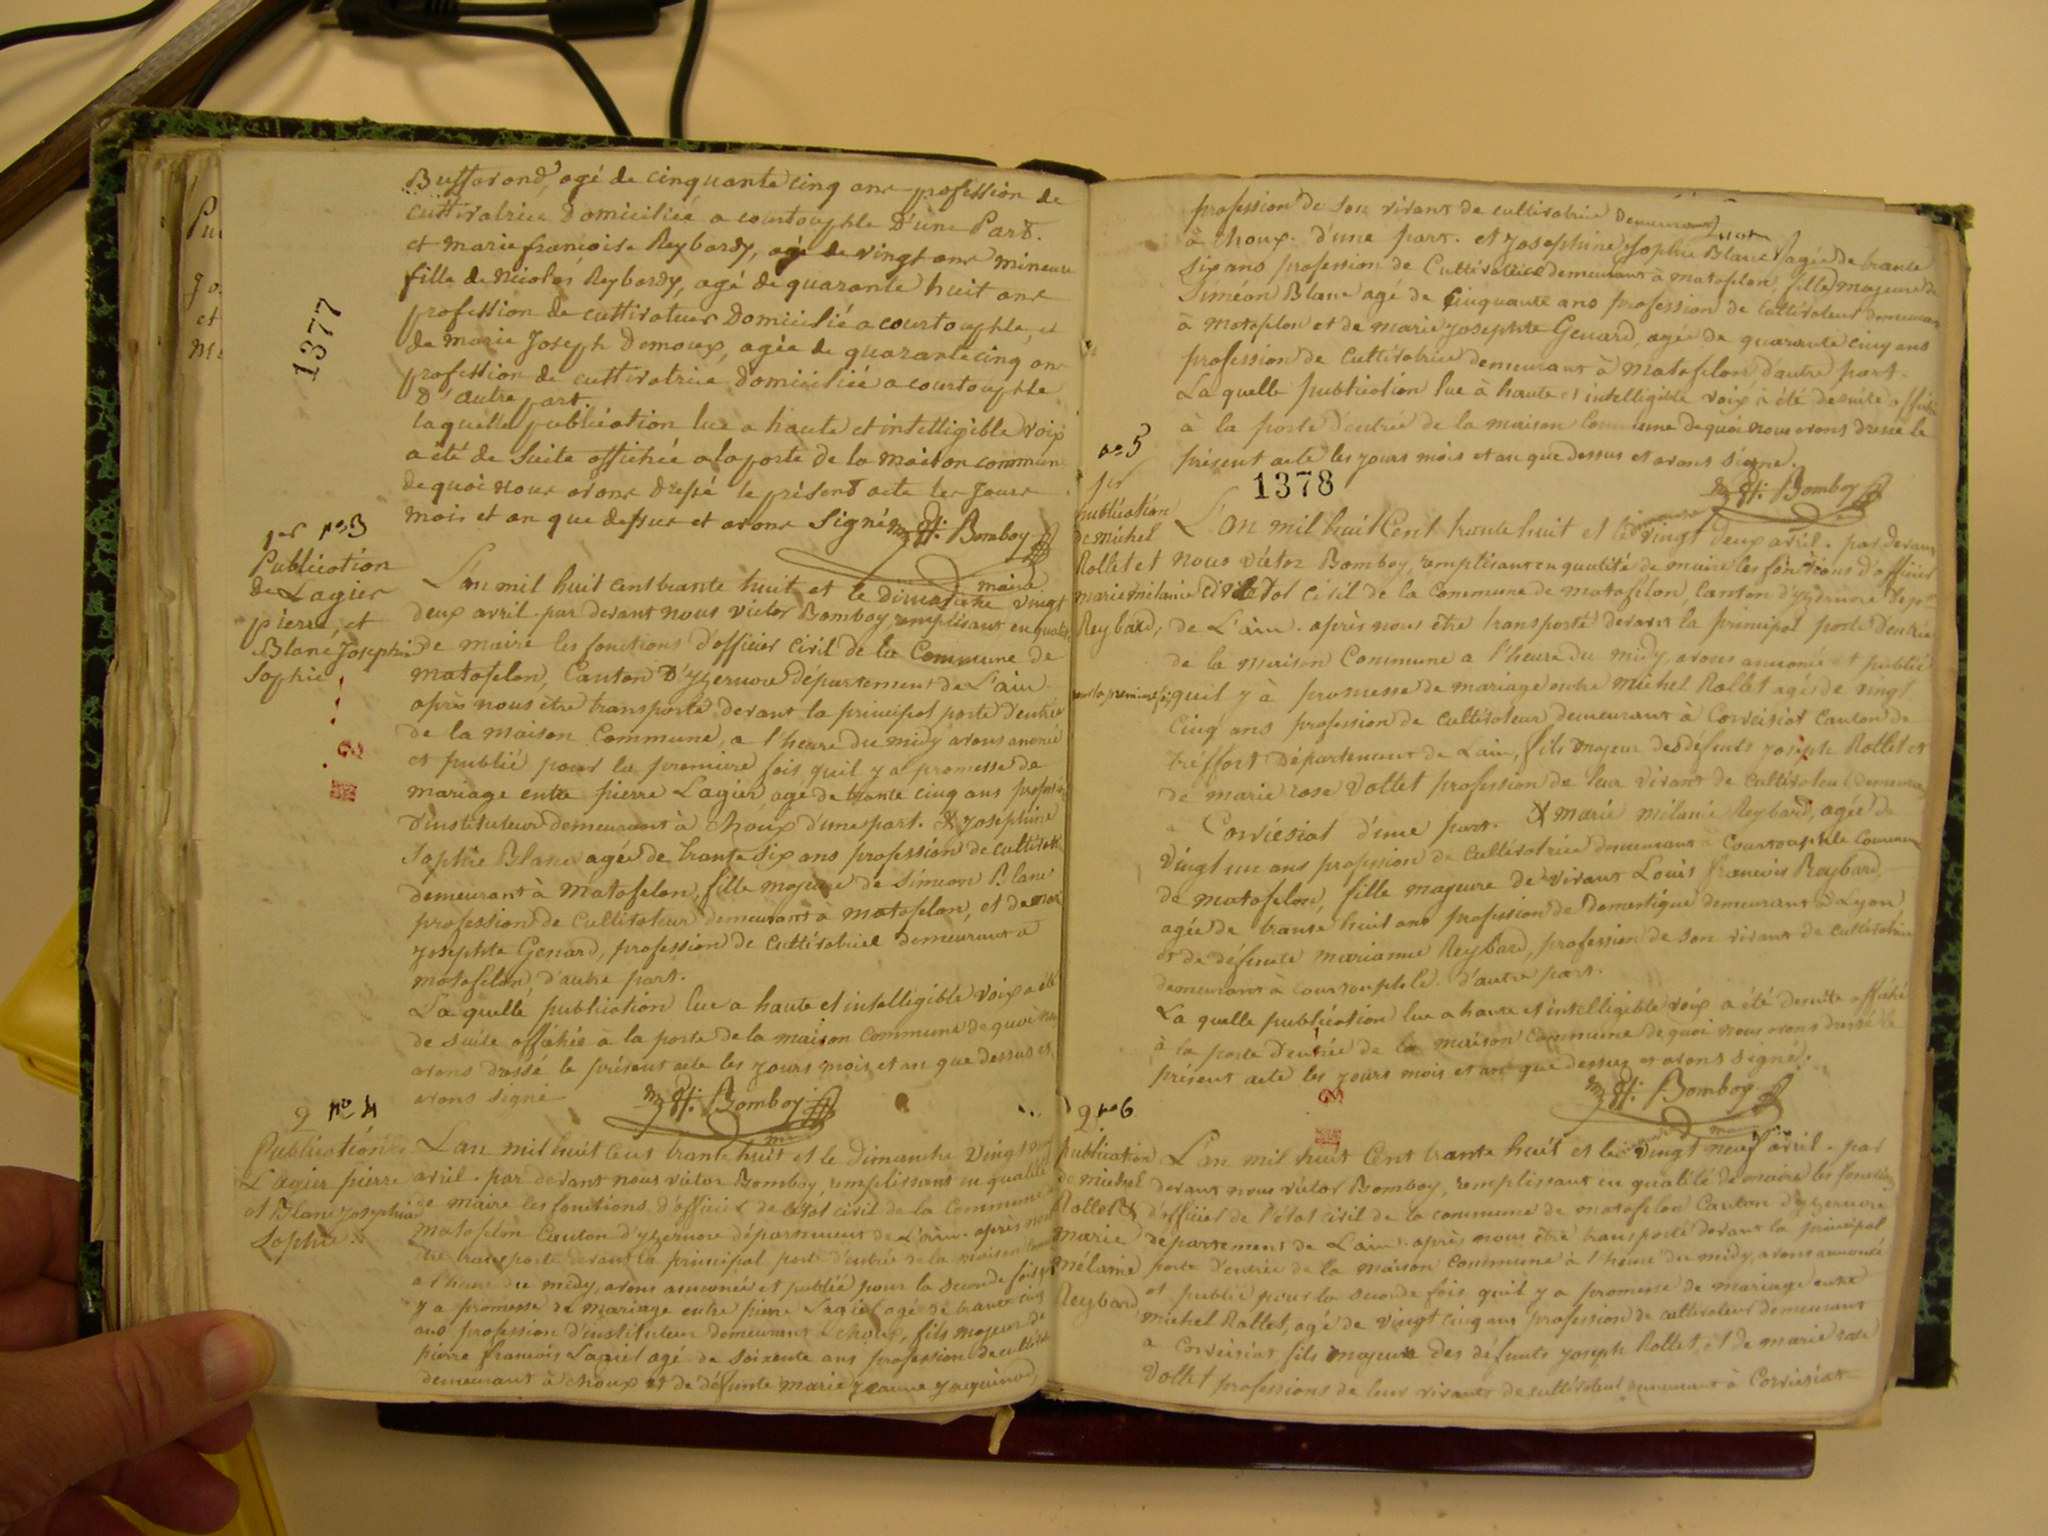 Buffavand, agé de cinquante cinq ans profession de
cultivatrice Domiciliée a courtouphle D'une Part.
et marie francoise Reybardy, agé de vingt ans mineure
fille de Nicolas Reybardy, agé de quarante huit ans
profession de cultivateur Domicilié a courtouphle, et
de marie Joseph Domoux, agée de quarante cinq ans
profession de cultivatrice Domiciliée a courtouphle
D'autre part.
laquelle publication lue a haute et intelligible voix
a été de Suite affichée a la porte de la maison commune
de quoi nous avons dressé le présent acte les Jours
mois et an que dessus et avons Signé Bomboy
maire
1377
1er no 3
Publication
de Lagier
pierre, et
Blanc Josephine
Sophie
L'an mil huit cent trante huit et le Dimanche vingt
deux avril. par devant nous victor Bomboy remplissant en qualité
de maire les fonctions d'officier civil de la Commune de
matafelon, Canton D'yzernore département de L'ain.
après nous être transporté devant la principal porte d'entrée
de la maison Commune, a l'heure du midy avons anoncé
et publié pour la premiere fois quil y a promesse de
mariage entre pierre Lagier agé de trante cinq ans profession
d'instituteur demeurant à Choux d'une part. Et Josephine
Sophie Blanc agée de trante six ans profession de cultivatrice
demeurant à Matafelon, fille majeure de Siméon Blanc
profession de Cultivateur demeurant à matafelon, et de marie
josephte Genard, profession de cultivatrice demeurant à
matafelon, d'autre part.
La quelle publication lue a haute et intelligible voix a été
de suite affichée à la porte de la maison Commune de quoi nous
avons dressé le présent acte les jours mois et an que dessus et
avons signé Bomboy
2 no 4
Publication
Lagier pierre
et Blanc josephine
Sophie
L'an mil huit cent trante huit et le dimanche vingt neuf
avril. par devant nous victor Bomboy, remplissant en qualité
de maire les fonctions d'officier de l'état civil de la Commune de
matafelon Canton d'yzernore département de L'ain. après nous
être transporté devant la principal porte d'entrée de la maison Commune
a l'heure du midy, avons annoncé et publié pour la seconde fois quil
y a promesse de mariage entre pierre Lagier agé de trante cinq
ans profession d'instituteur demeurant à choux, fils majeur de
pierre francois Lagier agé de soixente ans profession de cultivateur
demeurant à choux et de défunte marie jeanne jacquinod
profession de son vivant de cultivatrice Demeurant
à Choux. d'une part. et Josephine Sophie Blanc agée de trante
six ans profession de Cultivatrice demeurant à matafelon, fille majeure de
Siméon Blanc agé de cinquante ans profession de cultivateur demeurant
à Matafelon et de marie josephte Genard, agée de quarante cinq ans
profession de Cultivatrice demeurant à Matafelon d'autre part.
La quelle publication lue à haute et intelligible voix à été de suite affichée
à la porte d'entrée de la maison Commune de quoi nous avons dressé le
présent acte les jours mois et an que dessus et avons signé.
Bomboy
1378
no 5
1er
publication
de michel
Rollet et
marie mélanie
Reybard,
L'an mil huit Cent trante huit et le vingt deux avril. par devant
nous victor Bomboy, remplissant en qualité de maire les fonctions d'officier
de l'état civil de la Commune de matafelon, Canton d'yzernore Dept
de L'ain. après nous être transporté devant la principal porte d'entrée
de la maison Commune a l'heure du midy, avons annoncé et publié
pour la premiere fois quil y à promesse de mariage entre michel Rollet agé de vingt
Cinq ans profession de cultivateur demeurant à Corveisiat canton de
tréffort Département de Lain, fils majeur des défunts joseph Rollet et
de marie rose Vollet profession de leur vivant de cultivateur demeurant
a Corveisiat d'une part. Et marie mélanie Reybard, agée de
Vingt un ans profession de cultivatrice demeurant à Courtouphle Commune
de matafelon, fille majeure de vivant Louis francois Reybard,
agée de trante huit ans profession de Domestique demeurant à Lyon
et de défunte marianne Reybard, profession de son vivant de cultivatrice
demeurant à Courtouphle. d'autre part.
La quelle publication lue a haute et intelligible voix a été de suite affiché
à la porte d'entrée de la maison Commune de quoi nous avons dressé le
présent acte les jours mois et an que dessus et avons signé.
Bomboy
2 no 6
publication
de michel
Rollet &
marie
mélanie
Reybard
L'an mil huit Cent trante huit et le vingt neuf avril. par
devant nous victor Bomboy, remplissant en qualité de maire les fonctions
d'officier de l'état civil de la commune de matafelon Canton d'yzernore
département de Lain. après nous être transporté devant la principal
porte d'entrée de la maison Commune à l'heure du midy, avons annoncé
et publié pour la seconde fois quil y a promesse de mariage entre
michel Rollet, agé de vingt cinq ans profession de cultivateur demeurant
a Corveisiat fils majeur des défunts joseph Rollet, et de marie rose
Vollet professions de leur vivants de cultivateur demeurant à Corveisiat